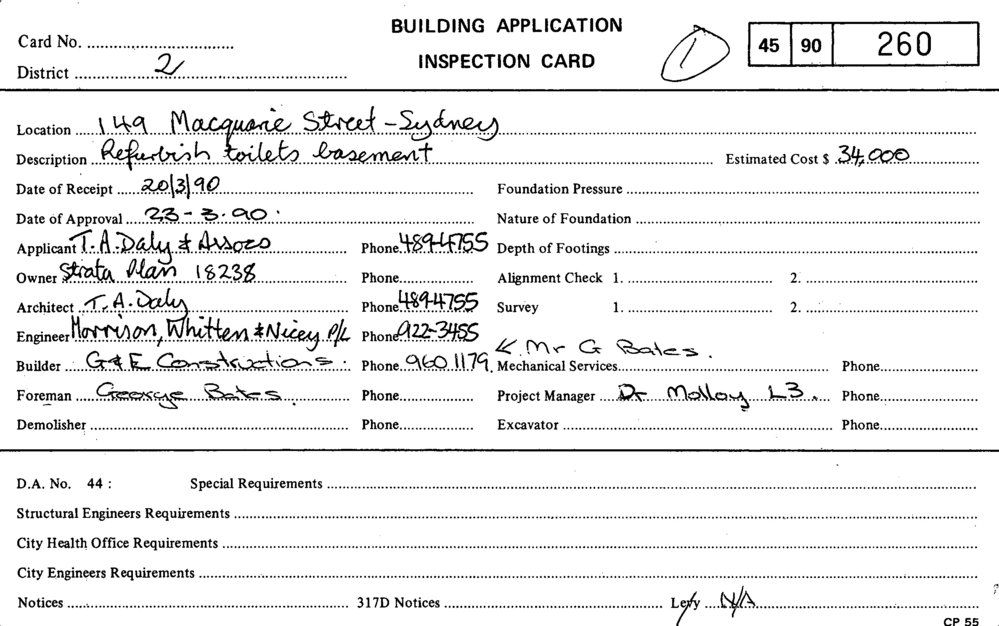 BUILDING APPLICATION
INSPECTION CARD
Card No.
District 2
1
45 90 260
Location 149 Macquarie Street - Sydney
Description Refurbish toilets basement Estimated Cost $ 34,000
Date of Receipt 20/3/90 Foundation Pressure
Date of Approval 23-3.90. Nature of Foundation
Applicant T.A. Daly & Assocs Phone 489-4755 Depth of Footings
Owner Strata Plan 18238 Phone Alignment Check 1. 2.
Architect T.A. Daly Phone 489-4755 Survey 1. 2.
Engineer Morrison, Whitten & Nicey P/L Phone 922-3455
← Mr G Bates.
Builder G & E Constructions. Phone 960 1179 Mechanical Services Phone
Foreman George Bates. Phone Project Manager Dr Molloy L3. Phone
Demolisher Phone Excavator Phone
D.A. No. 44 : Special Requirements
Structural Engineers Requirements
City Health Office Requirements
City Engineers Requirements
Notices 317D Notices Levy N/A
CP 55